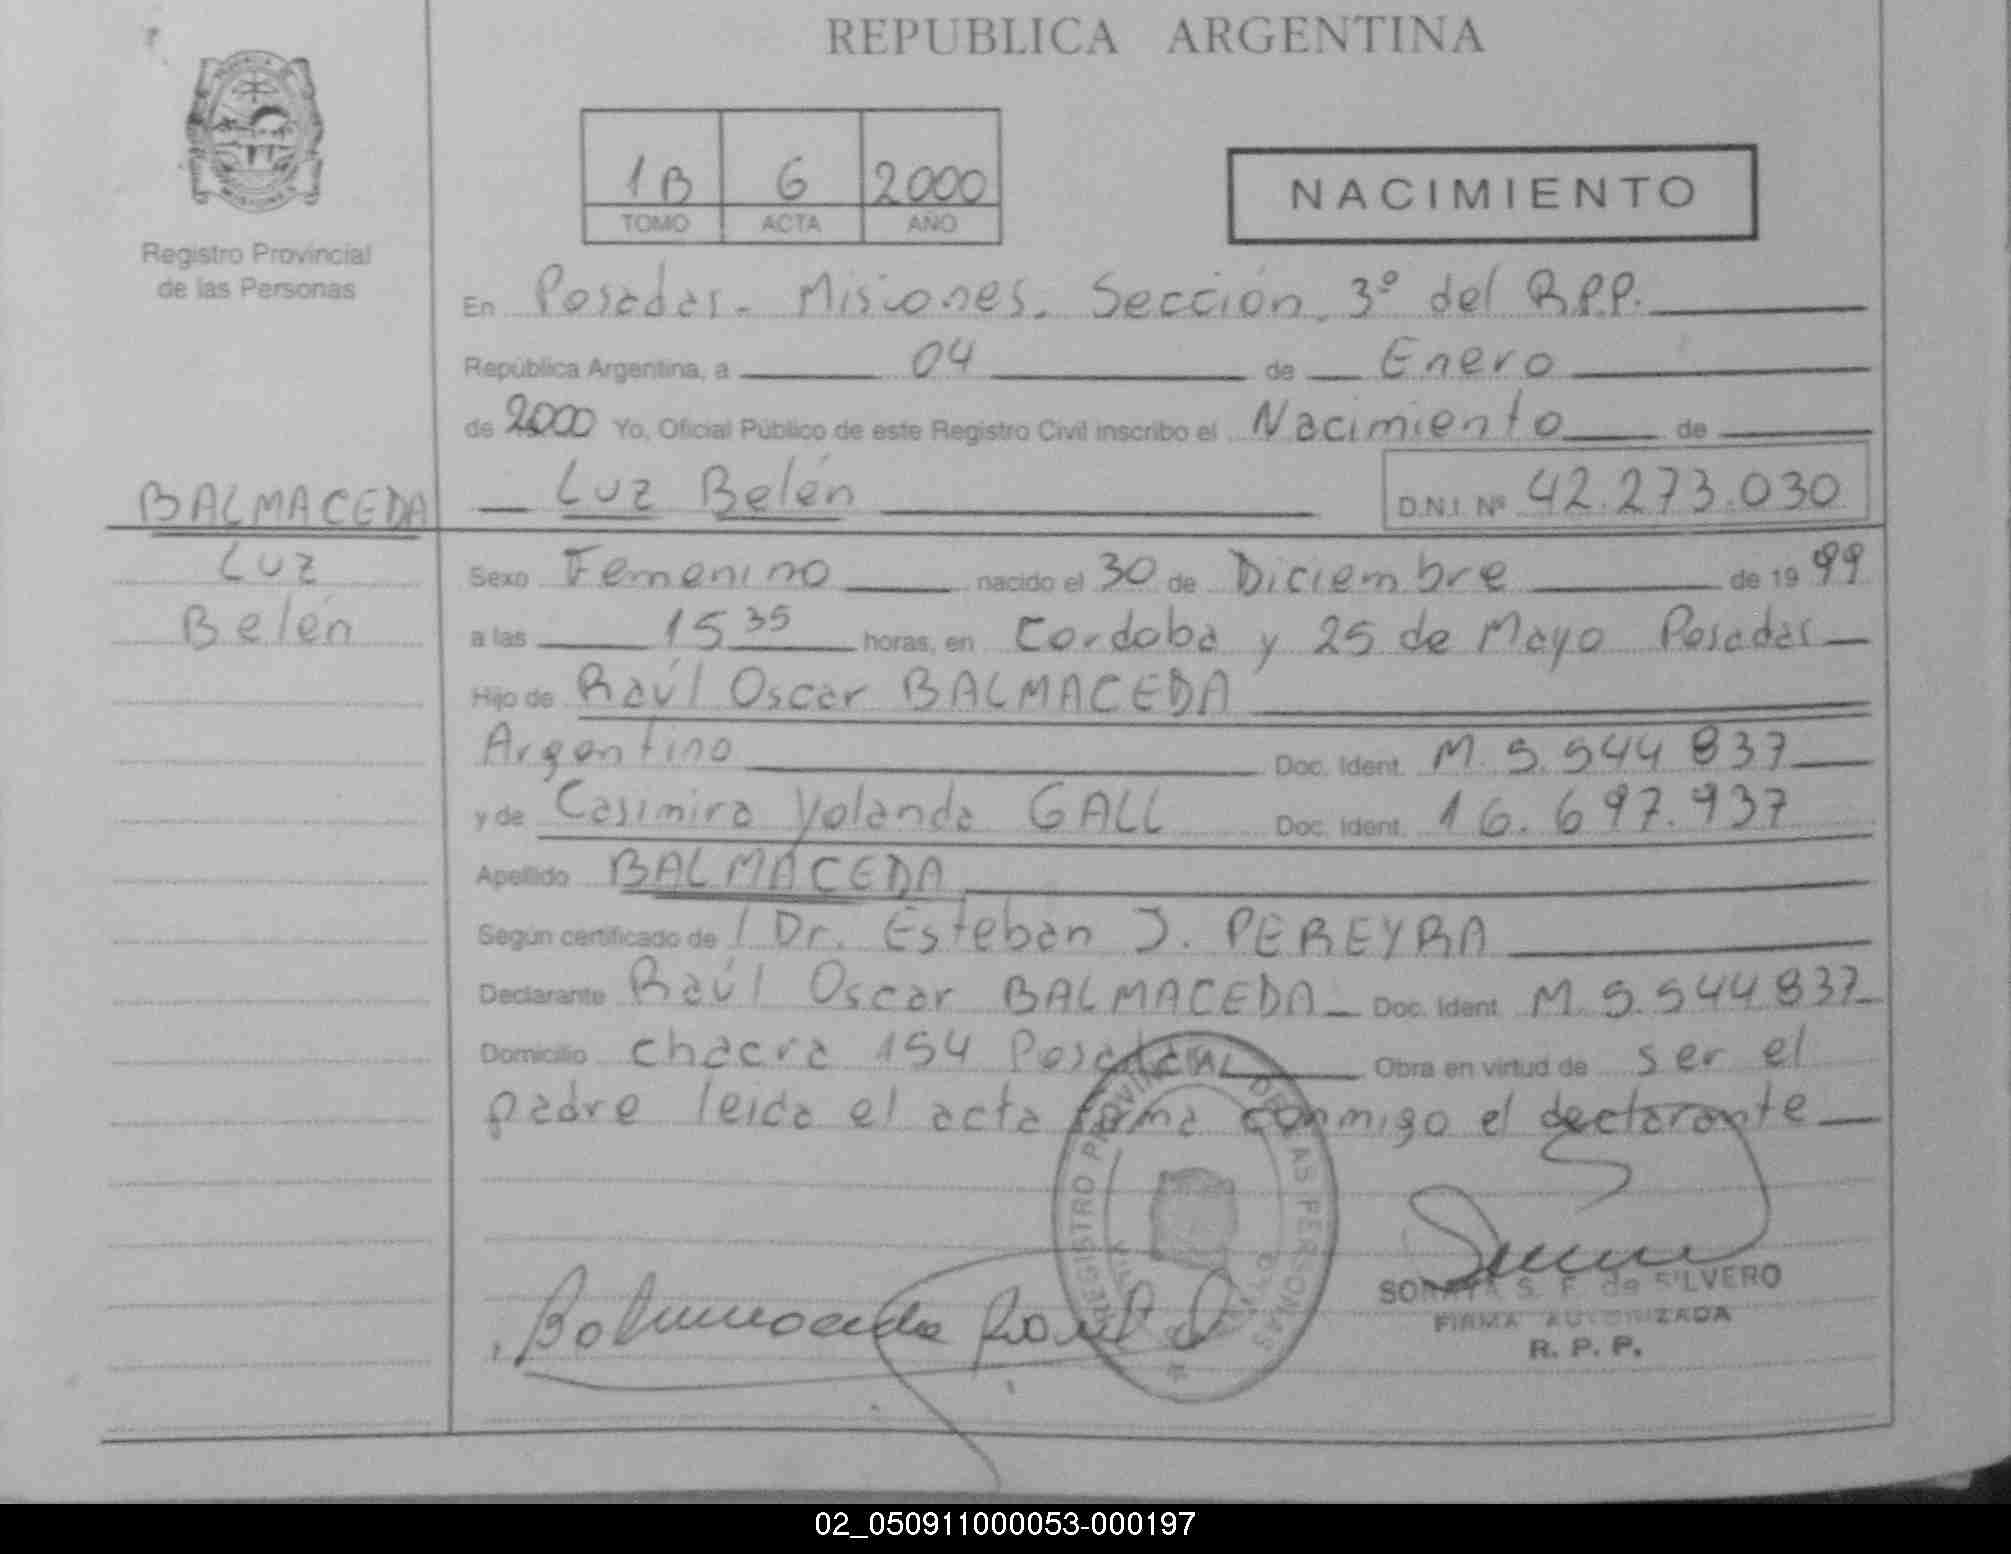 REPUBLICA ARGENTINA
Registro Provincial
de las Personas
1B 6 2000
TOMO ACTA AÑO
NACIMIENTO
En Posadas. Misiones. Sección. 3º del R.P.P.
República Argentina, a 04 de Enero
de 2000 Yo, Oficial Público de este Registro Civil inscribo el Nacimiento de
Luz Belén D.N.I. Nº 42.273.030
BALMACEDA
Luz
Belén
Sexo Femenino nacido el 30 de Diciembre de 1999
a las 15 35 horas, en Cordoba y 25 de Mayo Posadas
Hijo de Raúl Oscar BALMACEDA
Argentino Doc. Ident. M. 5.544 837
y de Casimira Yolanda GALL Doc. Ident. 16.697.937
Apellido BALMACEDA
Según certificado de / Dr. Esteban J. PEREYRA
Declarante Raúl Oscar BALMACEDA Doc. Ident. M. 5.544 837
Domicilio chacra 154 Posadas Obra en virtud de ser el
padre leida el acta firma conmigo el declarante
REGISTRO PROVINCIAL DE LAS PERSONAS
Balmaceda Raul O
SORAYA S. F. de SILVERO
FIRMA AUTORIZADA
R. P. P.
02_050911000053-000197